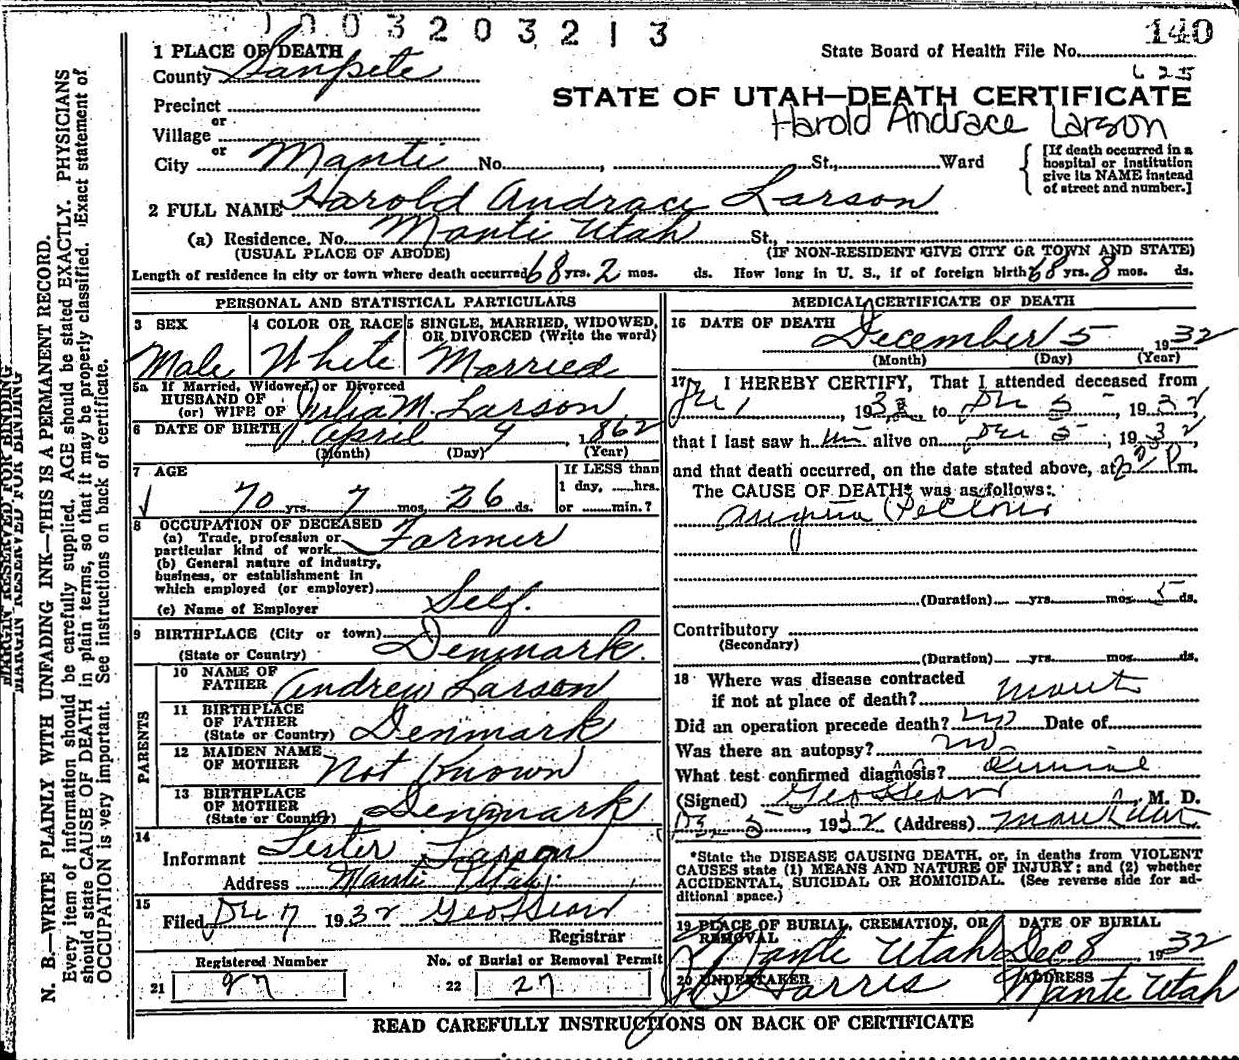 0003203213
140
1 PLACE OF DEATH
State Board of Health File No.
County Sanpete
625
Precinct
STATE OF UTAH—DEATH CERTIFICATE
or
Harold Andrace Larson
Village
or
City Manti No. , St., Ward
[If death occurred in a
hospital or institution
give its NAME instead
of street and number.]
2 FULL NAME Harold Andrace Larson
(a) Residence. No. Manti Utah St.,
(USUAL PLACE OF ABODE) (IF NON-RESIDENT GIVE CITY OR TOWN AND STATE)
Length of residence in city or town where death occurred 68 yrs. 2 mos. ds. How long in U. S., if of foreign birth? 68 yrs. 8 mos. ds.
PERSONAL AND STATISTICAL PARTICULARS
3 SEX
Male
4 COLOR OR RACE
White
5 SINGLE, MARRIED, WIDOWED,
OR DIVORCED (Write the word)
Married
5a If Married, Widowed, or Divorced
HUSBAND OF
(or) WIFE OF Julia M. Larson
6 DATE OF BIRTH April 9, 1862
(Month) (Day) (Year)
7 AGE
70 yrs. 7 mos. 26 ds.
If LESS than
1 day, hrs.
or min.?
8 OCCUPATION OF DECEASED
(a) Trade, profession or
particular kind of work Farmer
(b) General nature of industry,
business, or establishment in
which employed (or employer)
(c) Name of Employer Self.
9 BIRTHPLACE (City or town)
(State or Country) Denmark.
PARENTS
10 NAME OF
FATHER Andrew Larson
11 BIRTHPLACE
OF FATHER
(State or Country) Denmark
12 MAIDEN NAME
OF MOTHER Not Known
13 BIRTHPLACE
OF MOTHER
(State or Country) Denmark
14
Informant Lester Larson
Address Manti Utah
15
Filed Dec 7 1932
Registrar
Registered Number
21 97
No. of Burial or Removal Permit
22 27
MEDICAL CERTIFICATE OF DEATH
16 DATE OF DEATH
December 5 1932
(Month) (Day) (Year)
17 I HEREBY CERTIFY, That I attended deceased from
1, 193 to Dec 5, 1932
that I last saw him alive on Dec 5, 1932
and that death occurred, on the date stated above, at P m.
The CAUSE OF DEATH* was as follows:
Angina Pectoris
(Duration) yrs. mos. 5 ds.
Contributory
(Secondary)
(Duration) yrs. mos. ds.
18 Where was disease contracted
if not at place of death? Manti
Did an operation precede death? no Date of
Was there an autopsy? no
What test confirmed diagnosis?
(Signed) M. D.
Dec 5, 1932 (Address) Manti Utah
*State the DISEASE CAUSING DEATH, or, in deaths from VIOLENT
CAUSES state (1) MEANS AND NATURE OF INJURY; and (2) whether
ACCIDENTAL, SUICIDAL OR HOMICIDAL. (See reverse side for ad-
ditional space.)
19 PLACE OF BURIAL, CREMATION, OR
REMOVAL
Manti Utah
DATE OF BURIAL
Dec 8 1932
20 UNDERTAKER
Harris
ADDRESS
Manti Utah
READ CAREFULLY INSTRUCTIONS ON BACK OF CERTIFICATE
MARGIN RESERVED FOR BINDING
MARGIN RESERVED FOR BINDING
N. B.—WRITE PLAINLY WITH UNFADING INK—THIS IS A PERMANENT RECORD.
Every item of information should be carefully supplied. AGE should be stated EXACTLY. PHYSICIANS
should state CAUSE OF DEATH in plain terms, so that it may be properly classified. Exact statement of
OCCUPATION is very important. See instructions on back of certificate.